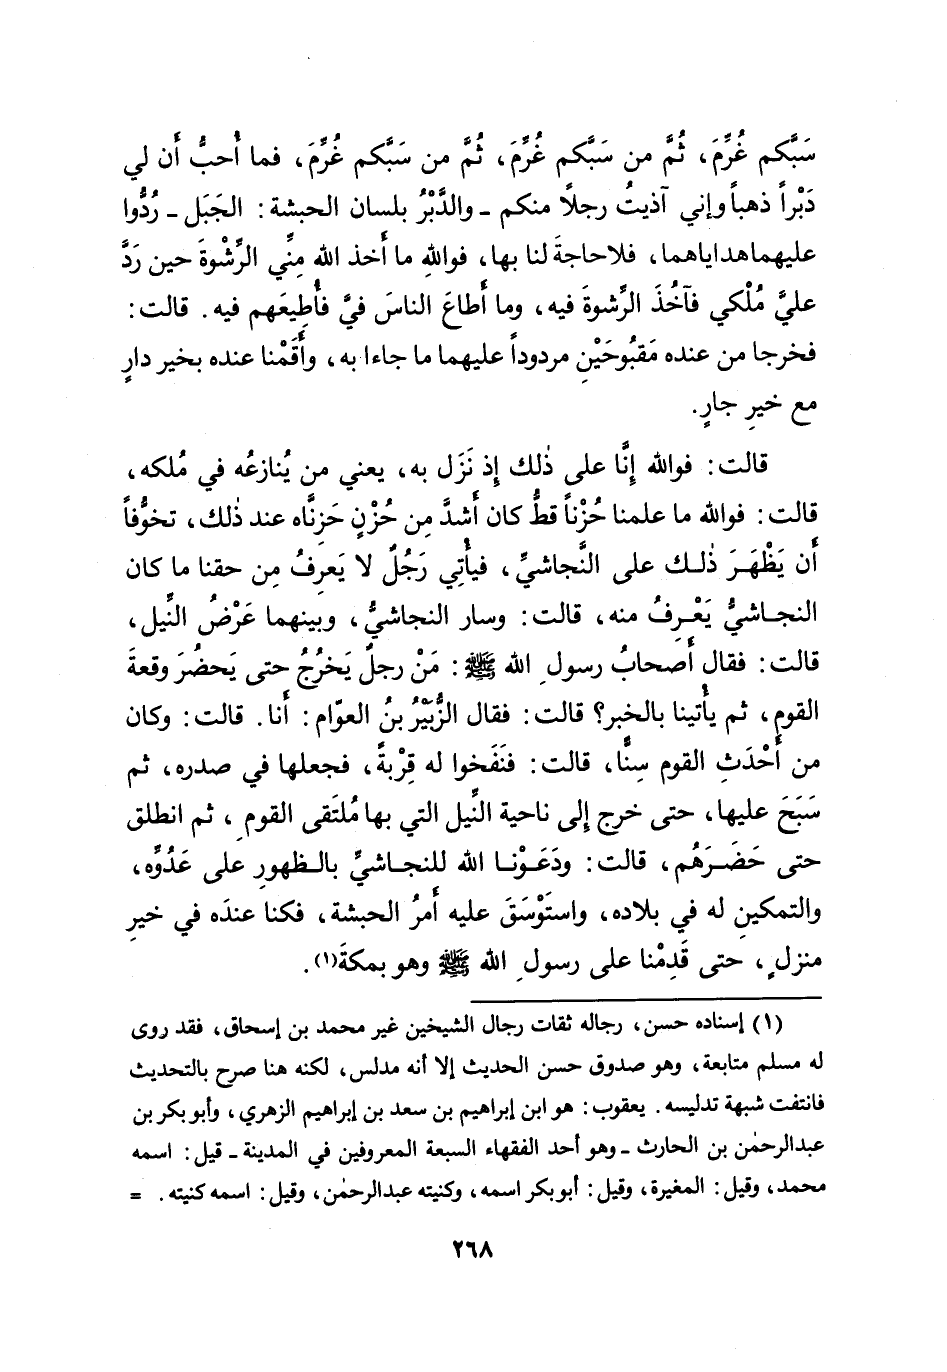 سَبَّكم غُرِّمَ، ثُمَّ من سَبَّكم غُرِّمَ، ثُمَّ من سَبَّكم غُرِّمَ، فما أُحبُّ أَن لي
دَبْراً ذهباً وإني آذيتُ رجلاً منكم ـ والدَّبْرُ بلسان الحبشة: الجَبَل ـ رُدُّوا
عليهما هداياهما، فلا حاجةَ لنا بها، فوالله ما أَخذ الله مِنِّي الرِّشْوةَ حين رَدَّ
عليَّ مُلْكي فآخُذَ الرِّشوةَ فيه، وما أَطاعَ الناسَ فيَّ فأُطِيعَهم فيه. قالت:
فخرجا من عنده مَقبُوحَيْنِ مردوداً عليهما ما جاءا به، وأَقَمْنا عنده بخير دارٍ
مع خيرِ جارٍ.
قالت: فوالله إِنَّا على ذٰلك إِذ نَزَل به، يعني من يُنازعُه في مُلكه،
قالت: فوالله ما علمنا حُزْناً قطُّ كان أَشدَّ مِن حُزْنٍ حَزِنَّاه عند ذٰلك، تخوُّفاً
أَن يَظْهَرَ ذٰلك على النَّجاشيِّ، فيأْتِي رَجُلٌ لا يَعرِفُ مِن حقنا ما كان
النجاشيُّ يَعْرِفُ منه، قالت: وسار النجاشيُّ، وبينهما عَرْضُ النِّيل،
قالت: فقال أَصحابُ رسولِ الله ﷺ: مَنْ رجلٌ يَخرُجُ حتى يَحضُرَ وقعةَ
القومِ، ثم يأْتينا بالخبر؟ قالت: فقال الزُّبَيْرُ بنُ العوّام: أَنا. قالت: وكان
من أَحْدَثِ القومِ سِنًّا، قالت: فنَفَخوا له قِرْبةً، فجعلها في صدره، ثم
سَبَحَ عليها، حتى خرج إِلى ناحية النِّيل التي بها مُلتَقى القومِ، ثم انطلق
حتى حَضَرَهُم، قالت: ودَعَوْنا الله للنجاشيِّ بالظهورِ على عَدُوِّه،
والتمكينِ له في بلاده، واستَوْسَقَ عليه أَمرُ الحبشة، فكنا عندَه في خيرِ
منزلٍ، حتى قَدِمْنا على رسولِ الله ﷺ وهو بمكةَ(١).
(١) إسناده حسن، رجاله ثقات رجال الشيخين غير محمد بن إسحاق، فقد روى
له مسلم متابعة، وهو صدوق حسن الحديث إلا أنه مدلس، لكنه هنا صرح بالتحديث
فانتفت شبهة تدليسه. يعقوب: هو ابن إبراهيم بن سعد بن إبراهيم الزهري، وأبو بكر بن
عبدالرحمٰن بن الحارث ـ وهو أحد الفقهاء السبعة المعروفين في المدينة ـ قيل: اسمه
محمد، وقيل: المغيرة، وقيل: أبو بكر اسمه، وكنيته عبدالرحمٰن، وقيل: اسمه كنيته. =
٢٦٨